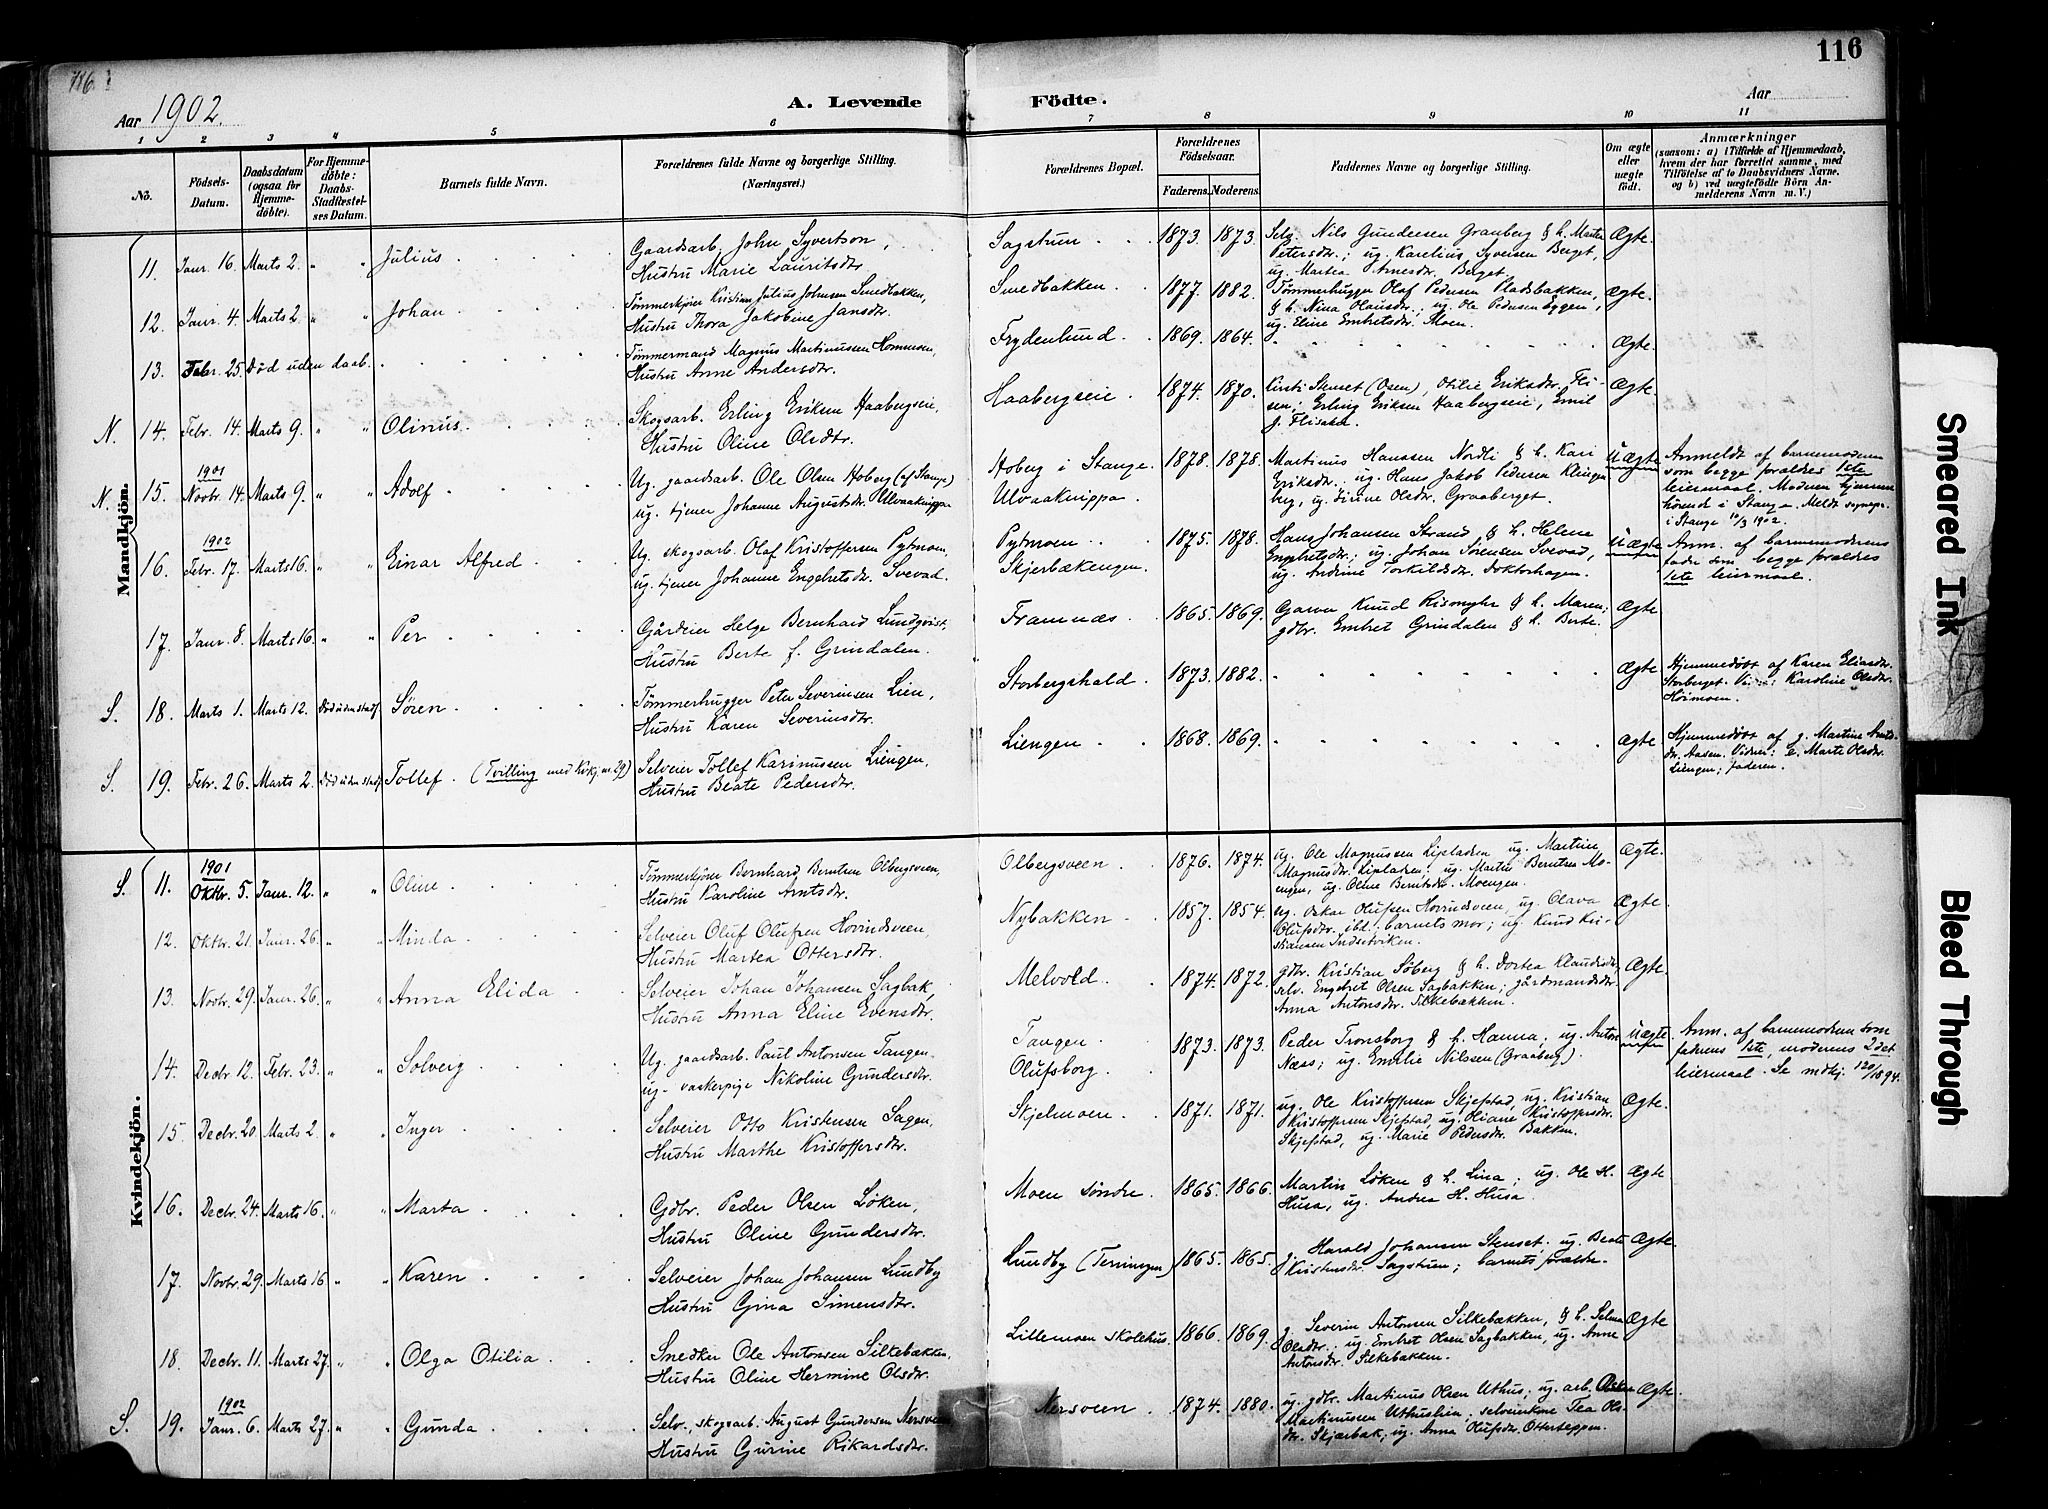 116
116
Aar 1902.
A. Levende Födte.
Aar
1 2 3 4 5 6 7 8 9 10 11
No.
Födsels-Datum.
Daabsdatum (ogsaa for Hjemme-döbte).
For Hjemme-döbte: Daabs-Stadfæstel-ses Datum.
Barnets fulde Navn.
Forældrenes fulde Navne og borgerlige Stilling. (Næringsvei.)
Forældrenes Bopæl.
Forældrenes Födselsaar.
Faderens. Moderens.
Faddernes Navne og borgerlige Stilling.
Om ægte eller uægte födt.
Anmærkninger
(saasom: a) i Tilfælde af Hjemmedaab, hvem der har forrettet samme, med Tilföielse af to Daabsvidners Navne, og b) ved uægtefödte Börn An-melderens Navn m. V.)
Mandkjön.
11. Janr. 16. Marts 2. " " Julius
Gaardsarb. John Syvertson,
Hustru Marie Lauritsdtr.
Sagstuen 1873. 1873.
Selv. Nils Gundersen Granberg & h. Marten
Petersdtr.; ug. Karelius Syversen Berget,
ug. Martea Arnesdtr. Berget.
Ægte.
12. Janr. 4. Marts 2. " " Johan
Tømmerkjører Kristian Julius Johnsen Smedbakken,
Hustru Thora Jakobine Jansdtr.
Smedbakken 1877. 1882.
Tømmerhugger Olaf Pedersen Pladsbakken,
& h. Nina Olausdtr.; ug. Ole Pedersen Eggen,
ug. Eline Embretsdtr. Moen.
Ægte.
13. Febr. 25. Død uden daab.
Tømmermand Magnus Martinussen Hommsen,
Hustru Anne Andersdtr.
Frydenlund. 1869. 1864. Ægte.
N. 14. Febr. 14. Marts 9. " " Olinus.
Skogsarb. Erling Eriksen Haabergseie,
Hustru Oline Olsdtr.
Haabergseie 1874. 1870.
Kirsti Stenset (Osen), Otilie Eriksdtr. Fli-
sen; Erling Eriksen Haabergseie, Emil
J. Flisaker.
Ægte.
N. 15. 1901 Novbr. 14. Marts 9. " " Adolf
Ug. gaardsarb. Ole Olsen Hoberg (af Stange)
ug. tjener Johanne Augustsdtr. Ulvaaknippa
Hoberg i Stange.
Ulvaaknippa.
1878. 1878.
Martinus Hanssen Nordli & h. Kari
Eriksdtr.; ug. Hans Jakob Pedersen Klingen
berg, ug. Sirine Olsdtr. Graaberget.
Uægte
Anmeldt af barnemoderen
som begge foraldres 1ste
leiermaal. Moderen hjemme
hørende i Stange. Meldt sognepr.
i Stange 10/3 1902.
16. 1902 Febr. 17. Marts 16. " " Einar Alfred
Ug. skogsarb. Olaf Kristoffersen Pytmoen,
ug. tjener Johanne Engebretsdtr. Svevad.
Pytmoen
Skjerbækengen.
1875. 1878.
Hans Johansen Strand & h. Helene
Engebretsdtr.; ug. Johan Sørensen Svevad,
ug. Andrine Torkildsdtr. Doktorhagen.
Uægte
Anm. af barnemoderens
fader som begge foraldres
1ste leiermaal.
17. Janr. 8. Marts 16. " " Per
Gårdeier Helge Bernhard Lundqvist,
Hustru Berte f. Grindalen.
Framnæs. 1865. 1869.
Garver Knud Rismyhr & h. Maren;
gdbr. Embret Grindalen & h. Berte.
Ægte
S. 18. Marts 1. Marts 12. Død uden stadf. Søren
Tømmerhugger Peter Severinsen Lien,
Hustru Karen Severinsdtr.
Storbergshald. 1873. 1882. Ægte
Hjemmedøbt af Karen Eliasdtr.
Storberget. Karoline Olsdtr.
Hoimoen.
S. 19. Febr. 26. Marts 2. Død uden stadf. Tollef. (Tvilling med Kvkj. nr. 29)
Selveier Tollef Karinussen Liengen,
Hustru Beate Pedersdtr.
Liengen 1868. 1869. Ægte
Hjemmedøbt af g. Martine Arnts-
dtr. Aasen. Vidner: E. Marte Olsdtr.
Liengen; faderen.
Kvindekjön.
S. 11. 1901 Oktbr. 5. Janr. 12. " " Oline
Tømmerkjører Bernhard Berntsen Olbergsveen,
Hustru Karoline Arntsdtr.
Olbergsveen 1876. 1874.
ug. Ole Magnussen Lipladsen ug. Martine
Magnusdtr. Lipladsen; ug. Martin Berntsen Mo-
engen, ug. Oline Berntsdtr. Moengen.
Ægte.
12. Oktbr. 21. Janr. 26. " " Minda
Selveier Oluf Olufsen Hovindsveen,
Hustru Martea Ottersdtr.
Nybakken 1857. 1854.
ug. Oskar Olufsen Hovindsveen, ug. Olava
Olufsdtr. ibd., barnets mor; ug. Knud Kri-
stiansen Indsetviken.
Ægte.
13. Novbr. 29. Janr. 26. " " Anna Elida
Selveier Johan Johansen Sagbak,
Hustru Anna Eline Evensdtr.
Melvold 1874. 1872.
gdbr. Kristian Søberg & h. Dortea Klausdtr;
selv. Engebret Olsen Sagbakken; gårdmandsdtr.
Anna Antonsdtr. Silkebakken.
Ægte.
14. Decbr 12. Febr. 23. " " Solveig
Ug. gaardsarb. Paul Antonsen Tangen.
ug. vaskerpige Nikoline Gundersdtr.
Tangen
Olufsborg.
1873. 1873.
Peder Tronsborg & h. Hanna; ug. Anton
Næss; ug. Emilie Nilssen (Graaberg).
Uægte
Anm. af barnemoderen som
faderens 1ste, moderens 2det
leiermaal. Se mdkj. 120/1894.
15. Decbr. 20. Marts 2. " " Inger
Selveier Otto Kristensen Sagen,
Hustru Marthe Kristoffersdtr.
Skjelmoen. 1871. 1871.
ug. Ole Kristoffersen Skjefstad, ug. Kristian
Kristoffersen Skjefstad, ug. Oliane Kristoffersdtr.
Skjefstad, ug. Marie Pedersdtr. Bakken.
Ægte.
16. Decbr. 24. Marts 16. " " Marta
Gdbr. Peder Olsen Løken,
Hustru Oline Gundersdtr.
Moen søndre. 1865. 1866.
Martin Løken & h. Lina; ug. Ole H.
Husa, ug. Andrea H. Husa.
Ægte
17. Novbr. 29. Marts 16 " " Karen
Selveier Johan Johansen Lundby
Hustru Gina Simensdtr.
Lundby (Terningen) 1865. 1865.
g. Harald Johansen Stenset. ug. Beate
Kristensdtr. Sagstuen; barnets foraldre.
Ægte.
18. Decbr. 11. Marts 27. " " Olga Otilia
Snedker Ole Antonsen Silkebækken,
Hustru Oline Hermine Olsdtr.
Lillemoen skolehus. 1866. 1869.
g. Severin Antonsen Silkebækken, & h. Selma
Olsdtr.; ug. Embret Olsen Sagbakken, ug. Anne
Antonsdtr. Silkebækken.
Ægte
S. 19. 1902 Janr. 6. Marts 27. " " Gunda
Selv., skogsarb. August Gundersen Nersveen
Hustru Gurine Rikardsdtr.
Nersveen 1874. 1880.
ug. gdbr. Martinus Olsen Uthus; ug. arb. Oskar
Martinussen Uthuslien; selveierkone Tea Ols-
dtr. Skjærbak; ug. Anna Olufsdtr. Otterteppen.
Ægte.
Smeared Ink
Bleed Through